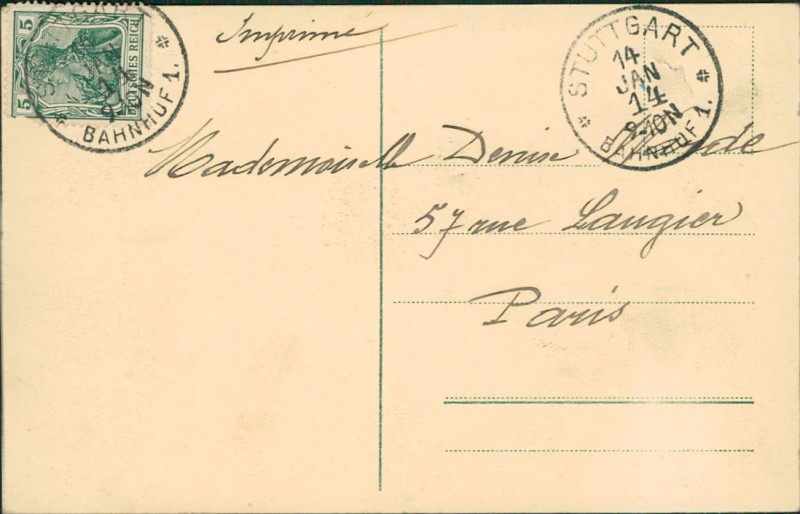 5 5
DEUTSCHES REICH
BAHNHOF 1.
Imprimé
STUTTGART
14
JAN
14
9-10N
BAHNHOF 1.
Mademoiselle Denise
57 rue Laugier
Paris